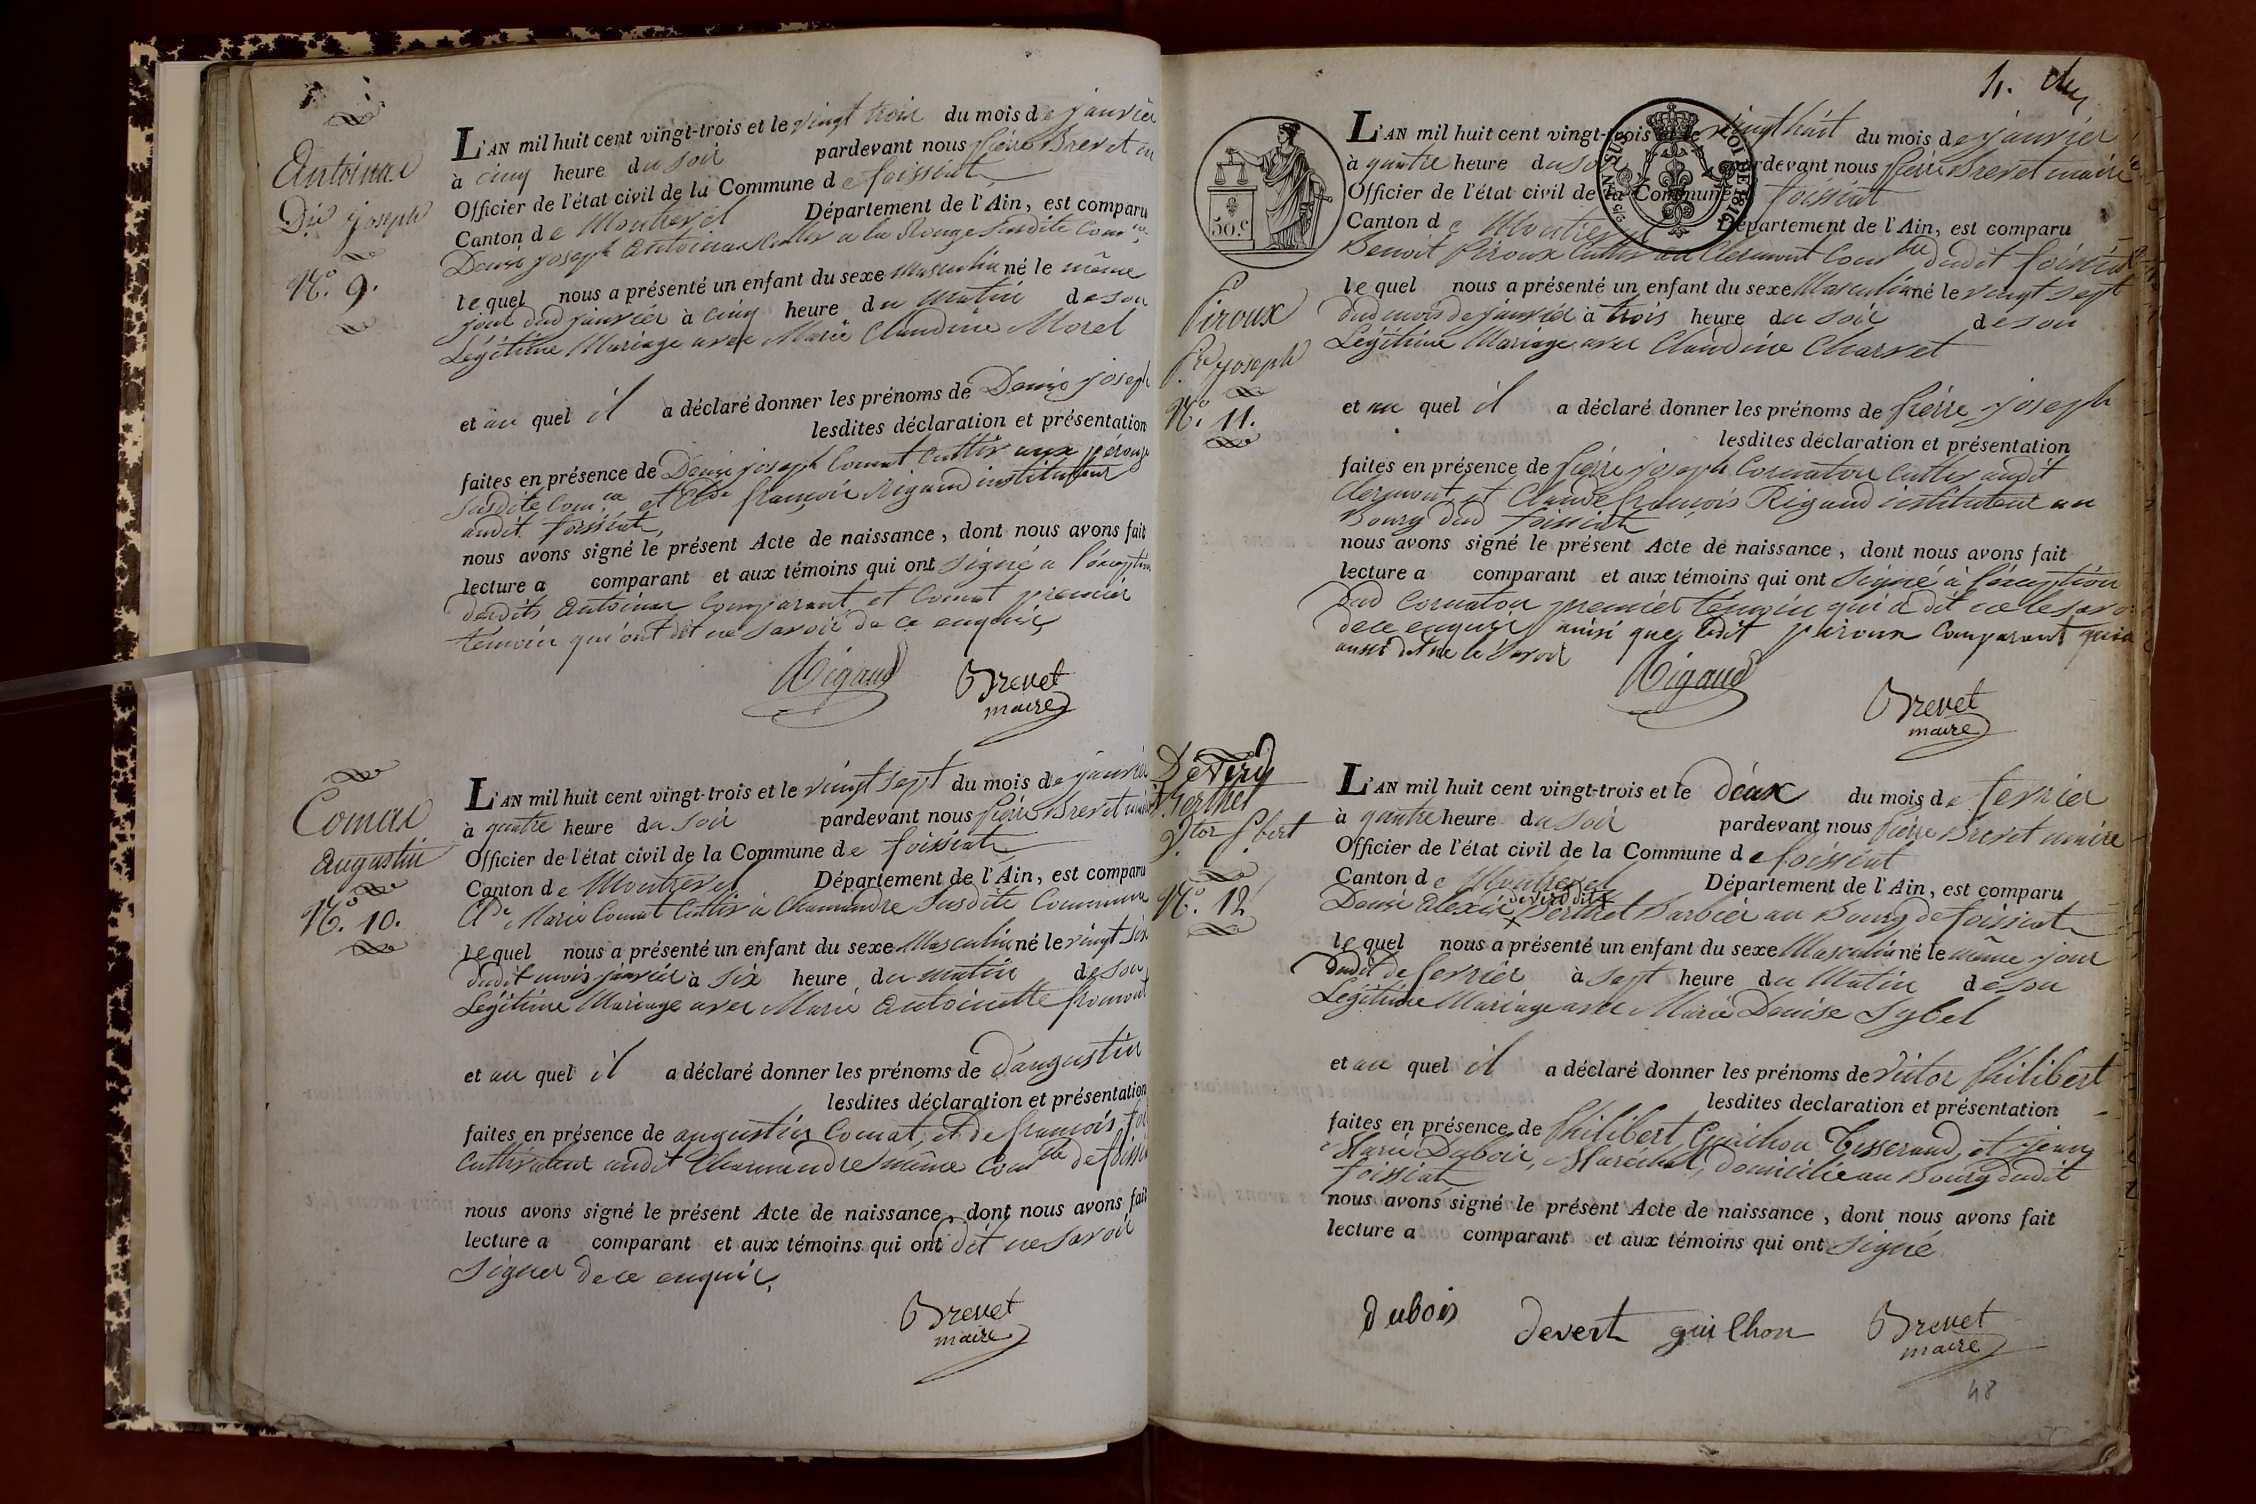 Antoinat
Dis Joseph
N.º 9.
L'AN mil huit cent vingt-trois et le vingt trois du mois de janvier
à cinq heure du soir pardevant nous pierre Brevet
Officier de l'état civil de la Commune de foissiat
Canton de Montrevel Département de l'Ain, est comparu
Denis joseph Antoinat Cultiv a la Rouge Susdite Com.ne
lequel nous a présenté un enfant du sexe Masculin né le même
jour dud janvier à cinq heure du matin de son
Légitime Mariage avec Marie Claudine Morel
et au quel il a déclaré donner les prénoms de Denis joseph
lesdites déclaration et présentation
faites en présence de Denis joseph Comat Cultiv aux
Susdite Com.ne et Cl.de françois Rigaud instituteur
audit foissiat
nous avons signé le présent Acte de naissance, dont nous avons fait
lecture a comparant et aux témoins qui ont signé a l'exception
desdits Antoinat Comparant et Comat premier
témoin qui ont dit ne savoir de ce enquis
Rigaud Brevet
maire
Comat
Augustin
N.º 10.
L'AN mil huit cent vingt-trois et le vingt sept du mois de janvier
à quatre heure du soir pardevant nous pierre Brevet maire
Officier de l'état civil de la Commune de foissiat
Canton de Montrevel Département de l'Ain, est comparu
Cl.de Marie Comat Cultiv à Charmandre Susdite Commune
lequel nous a présenté un enfant du sexe Masculin né le vingt six
dudit mois janvier à six heure du matin de son
Légitime Mariage avec Marie Antoinette fromont
et au quel il a déclaré donner les prénoms de d'augustin
lesdites déclaration et présentation
faites en présence de augustin Comat et de françois
Cultivateur audit Charmandre même Com.ne de foissiat
nous avons signé le présent Acte de naissance, dont nous avons fait
lecture a comparant et aux témoins qui ont dit ne savoir
signer de ce enquis
Brevet
maire
4.
50.c
LOI DE 1816
L'AN mil huit cent vingt-trois et le vingt huit du mois de janvier
à quatre heure du soir pardevant nous pierre Brevet maire
Officier de l'état civil de la Commune foissiat
Canton de Montrevel Département de l'Ain, est comparu
Benoit Piroux Cultiv au Clermont Com.ne dudit foissiat
Piroux
P.re joseph
N.º 11.
lequel nous a présenté un enfant du sexe Masculin né le vingt sept
dud mois de janvier à trois heure du soir de son
Légitime Mariage avec Claudine Charvet
et au quel il a déclaré donner les prénoms de pierre joseph
lesdites déclaration et présentation
faites en présence de pierre joseph Cornaton Cultiv audit
Clermont et Claude françois Rigaud instituteur au
Bourg dud foissiat
nous avons signé le présent Acte de naissance, dont nous avons fait
lecture a comparant et aux témoins qui ont signé à l'exception
dud Cornaton premier témoin qui a dit ne le savoir
de ce enquis ainsi que ledit piroux Comparant qui a
aussi dit ne le savoir
Rigaud Brevet
maire
Devert
Berthet
V.tor P.bert
N.º 12
L'AN mil huit cent vingt-trois et le deux du mois de fevrier
à quatre heure du soir pardevant nous pierre Brevet maire
Officier de l'état civil de la Commune de foissiat
Canton de Montrevel Département de l'Ain, est comparu
Denis Alexis Berthet Barbier au Bourg de foissiat
lequel nous a présenté un enfant du sexe Masculin né le même jour
dudit de fevrier à sept heure du Matin de son
Légitime Mariage avec Marie Denise Sybel
et au quel il a déclaré donner les prénoms de Victor Philibert
lesdites declaration et présentation
faites en présence de Philibert Guichon Tisserand, et Jean
Marie Dubois, Maréchal, domicilié au Bourg dudit
foissiat
nous avons signé le présent Acte de naissance, dont nous avons fait
lecture a comparant et aux témoins qui ont signé
dubois devert guichon Brevet
maire
48